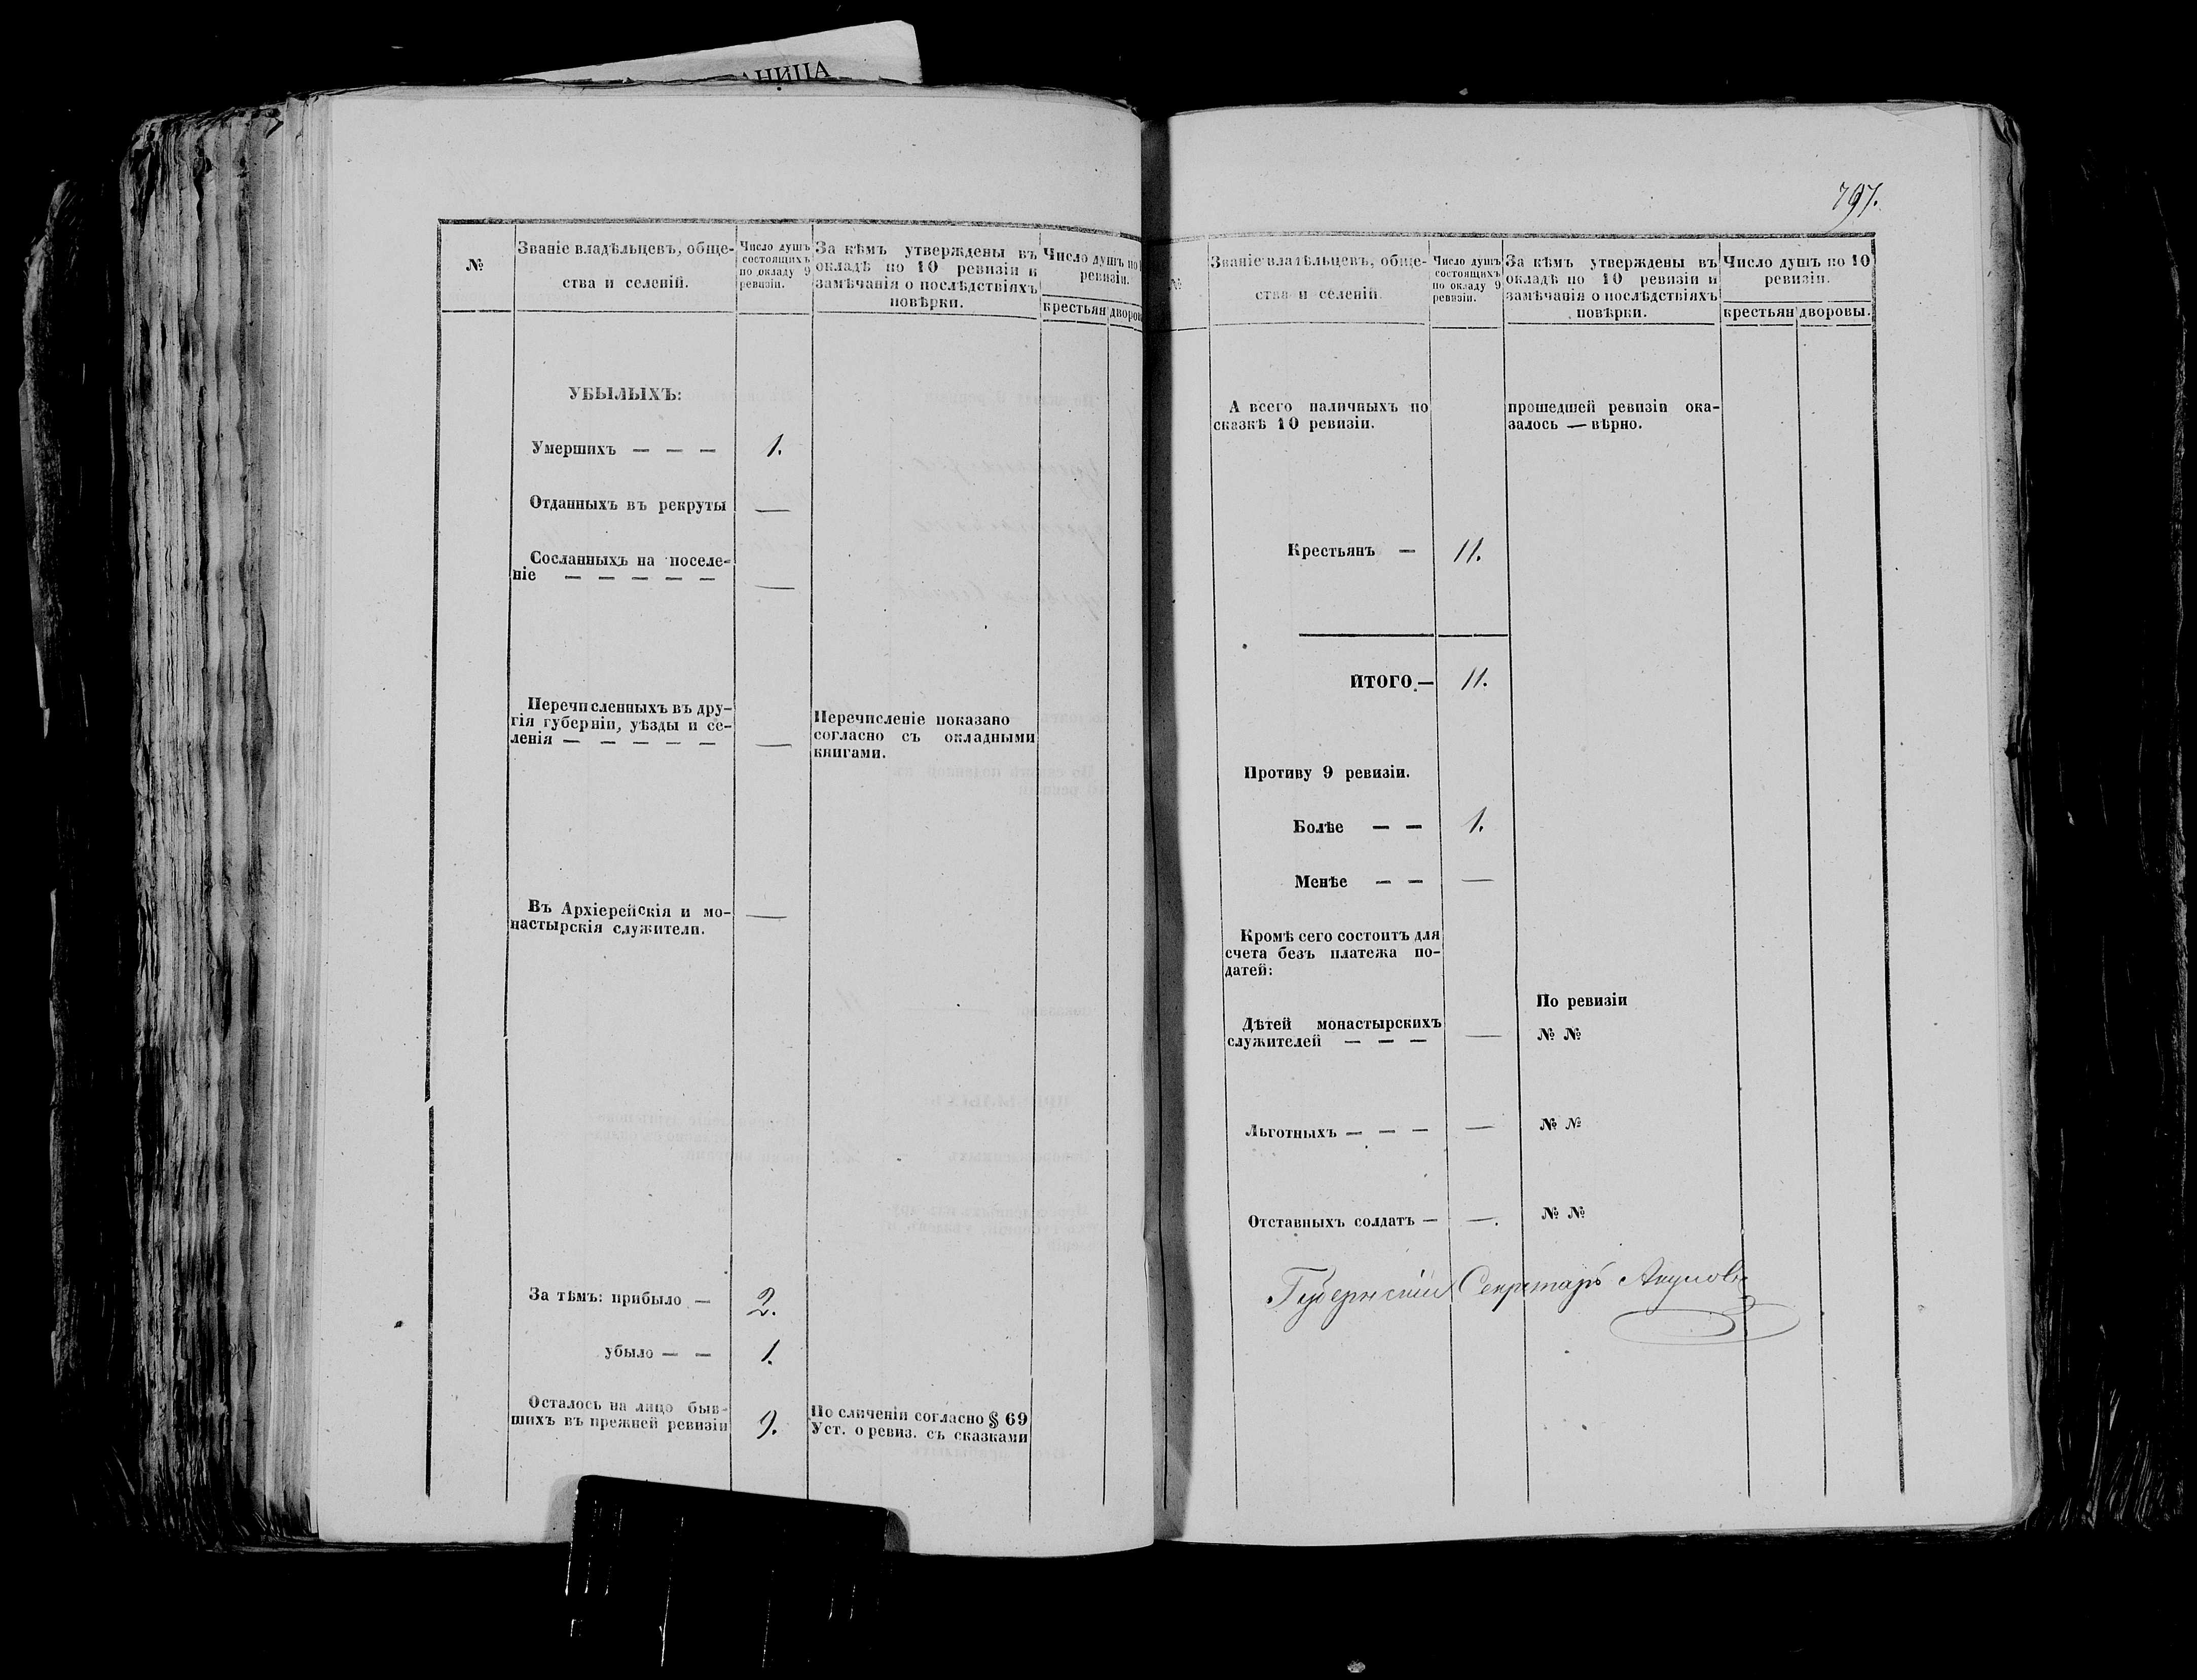 НИЦА
№
Званіе владѣльцевъ, обще-
ства и селеній.
Число душъ
состоящихъ
по окладу 9
ревизіи.
За кѣмъ утверждены въ
окладѣ по 10 ревизіи и
замѣчанія о послѣдствіяхъ
повѣрки.
Число душъ по
ревизіи.
крестьян
дворов
УБЫЛЫХЪ:
Умершихъ — — — 1.
Отданныхъ въ рекруты —
Сосланныхъ на поселе-
ніе — — — — — —
Перечисленныхъ въ дру-
гія губерніи, уѣзды и се-
ленія — — — — — —
Перечисленіе показано
согласно съ окладными
книгами.
Въ Архіерейскія и мо- —
настырскія служители.
За тѣмъ: прибыло — 2.
убыло — — 1.
Осталось на лицо быв-
шихъ въ прежней ревизіи 9.
По сличеніи согласно § 69
Уст. о ревиз. съ сказками
797.
№
Званіе владѣльцевъ, обще-
ства и селеній.
Число душъ
состоящихъ
по окладу 9
ревизіи.
За кѣмъ утверждены въ
окладѣ по 10 ревизіи и
замѣчанія о послѣдствіяхъ
повѣрки.
Число душъ по 10
ревизіи.
крестьян
дворовы.
А всего наличныхъ по
сказкѣ 10 ревизіи.
прошедшей ревизіи ока-
залось — вѣрно.
Крестьянъ — 11.
ИТОГО.— 11.
Противу 9 ревизіи.
Болѣе — — 1.
Менѣе — — —
Кромѣ сего состоитъ для
счета безъ платежа по-
датей:
По ревизіи
Дѣтей монастырскихъ
служителей — — — — № №
Льготныхъ — — — — № №
Отставныхъ солдатъ — —. № №
Губернскій Секретарь